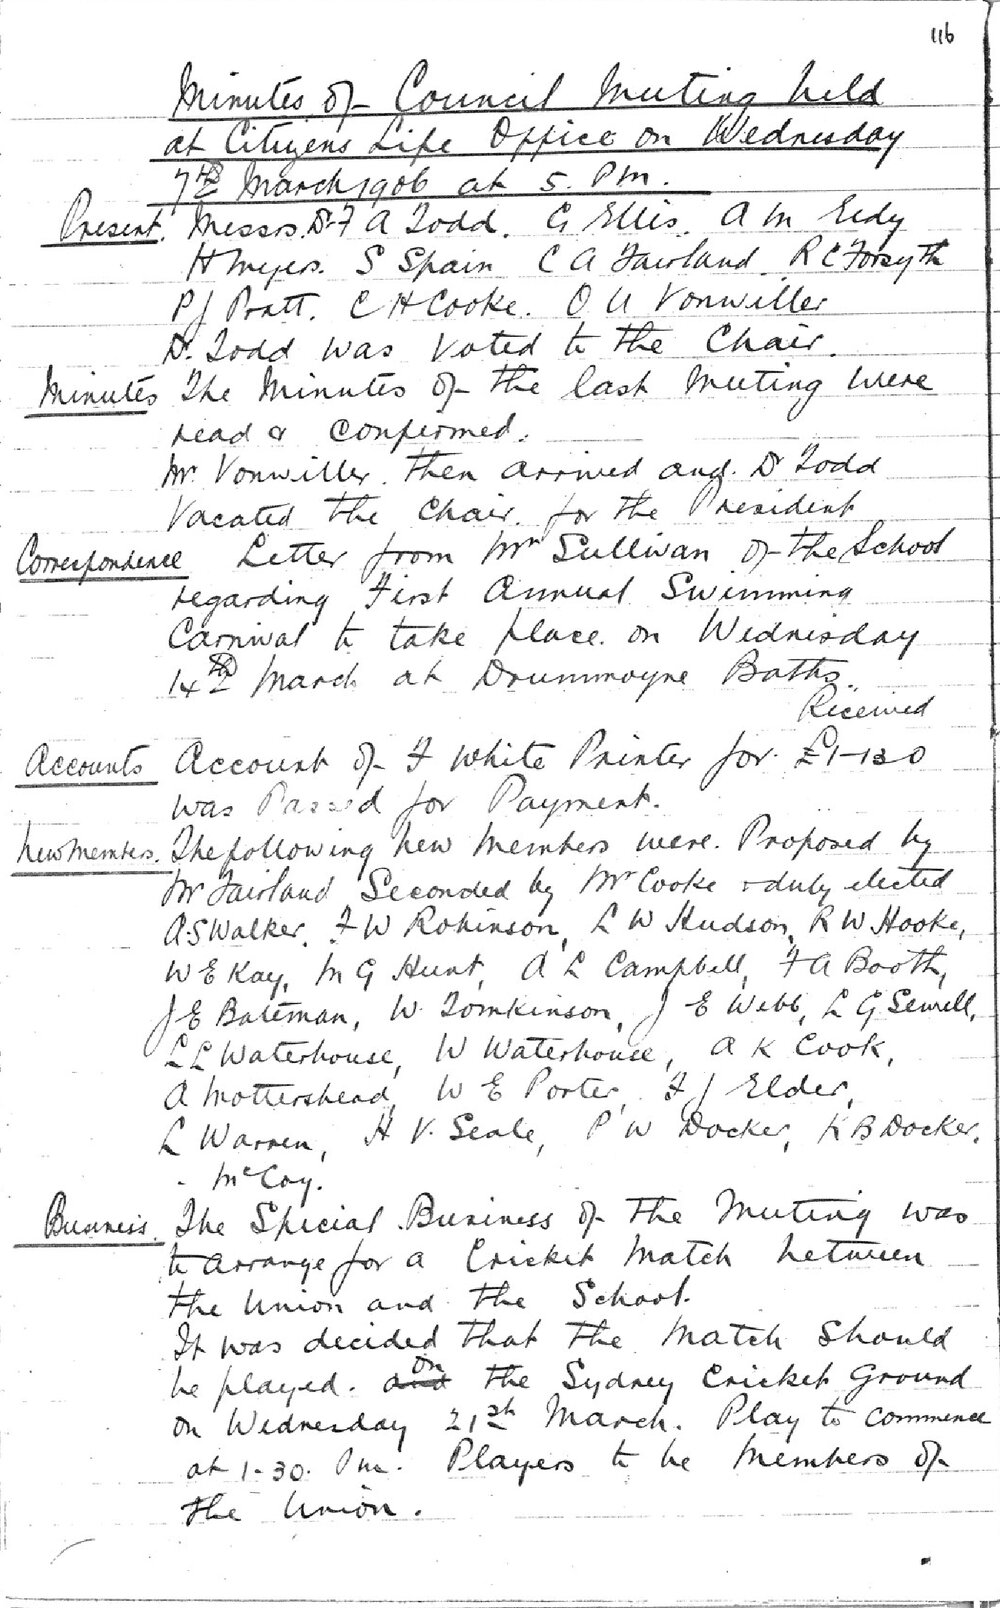 116
Minutes of Council Meeting held
at Citizens Life Office on Wednesday
7th March 1906 at 5. P.m.
Present. Messrs. Dr. F A Todd. G Ellis. A M Eedy
H Meyers. S Spain C A Fairland. R C Forsyth
P J Pratt. C H Cooke. O U Vonwiller
Dr. Todd was voted to the Chair.
Minutes The Minutes of the last Meeting were
read & confirmed.
Mr. Vonwiller. then arrived and. Dr Todd
Vacated the Chair. for the President
Correspondence Letter from Mr Sullivan of the School
regarding First Annual Swimming
Carnival to take place. on Wednesday
14th March at Drummoyne Baths.
Received
Accounts Account of F White Printer for £1-13 0
was Passed for Payment.
New Members. The following new Members were. Proposed by
Mr Fairland Seconded by Mr Cooke & duly elected
A.S Walker, F W Robinson, L W Hudson, R W Hooke,
W E Kay, M G Hunt, A L Campbell, F A Booth,
J E Bateman, W Tomkinson, J E Webb, L G Sewell,
L L Waterhouse, W Waterhouse, A K Cook,
A Mottershead, W E Porter, F J Elder,
L Warren, H V. Seale, P W Docker, K B Docker.
- McCoy.
Business. The Special Business of the Meeting was
to arrange for a Cricket Match between
the Union and the School.
It was decided that the Match should
be played. and on the Sydney Cricket Ground
on Wednesday 21st March. Play to commence
at 1-30. P.m. Players to be Members of
the Union.